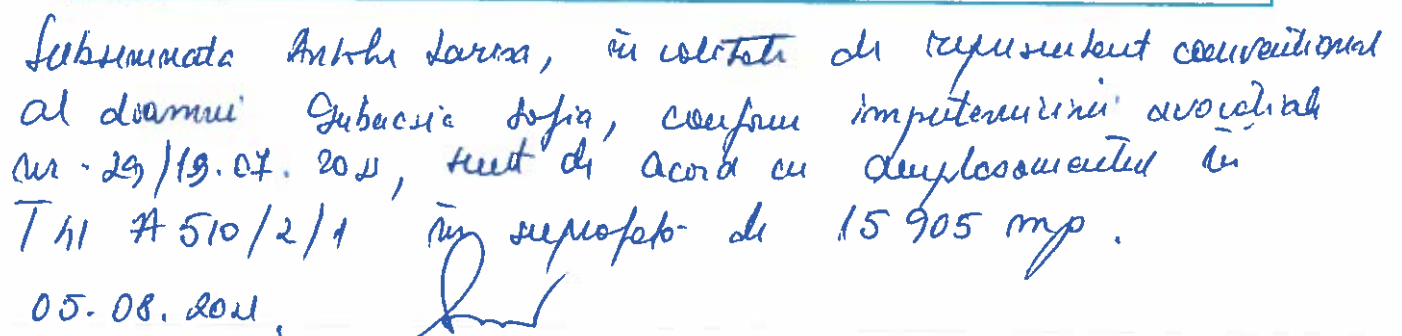 Subsemnata Larisa, în calitate de reprezentant convențional
al doamnei Sofia, conform împuternicirii avocațiale
nr. 29/19.07.2021, sunt de acord cu amplasamentul în
T 41 A 510/2/1 în suprafață de 15 905 mp.
05.08.2021.